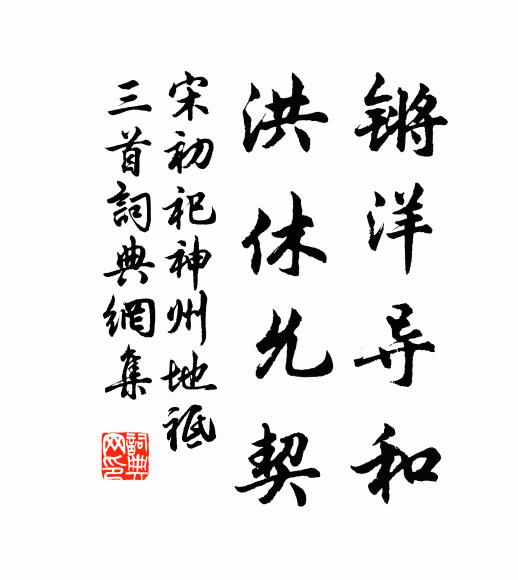 锵洋导和
洪休允契
宋初祀神州地祗
三首詞典網集
詞典网印